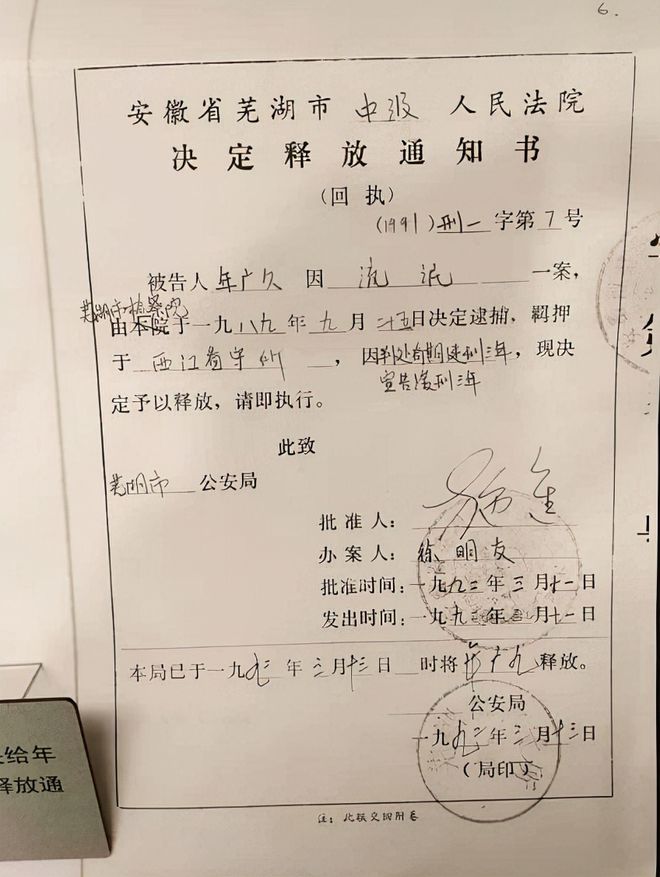 6.
安徽省芜湖市 中级 人民法院
决定释放通知书
（回执）
(1991) 刑一 字第 7 号
被告人 年广久 因 流氓 一案，
芜湖市检察院
由本院于一九八九年九月二十五日决定逮捕，羁押
于 西江看守所，因判处有期徒刑三年，现决
宣告缓刑三年
定予以释放，请即执行。
此致
芜湖市 公安局
批准人：
办案人：徐明友
批准时间：一九九二年三月十一日
发出时间：一九九二年三月十一日
本局已于一九九二年三月十三日 时将 年广九 释放。
公安局
一九九二年三月十三日
（局印）
注：此联交回附卷
给年
释放通